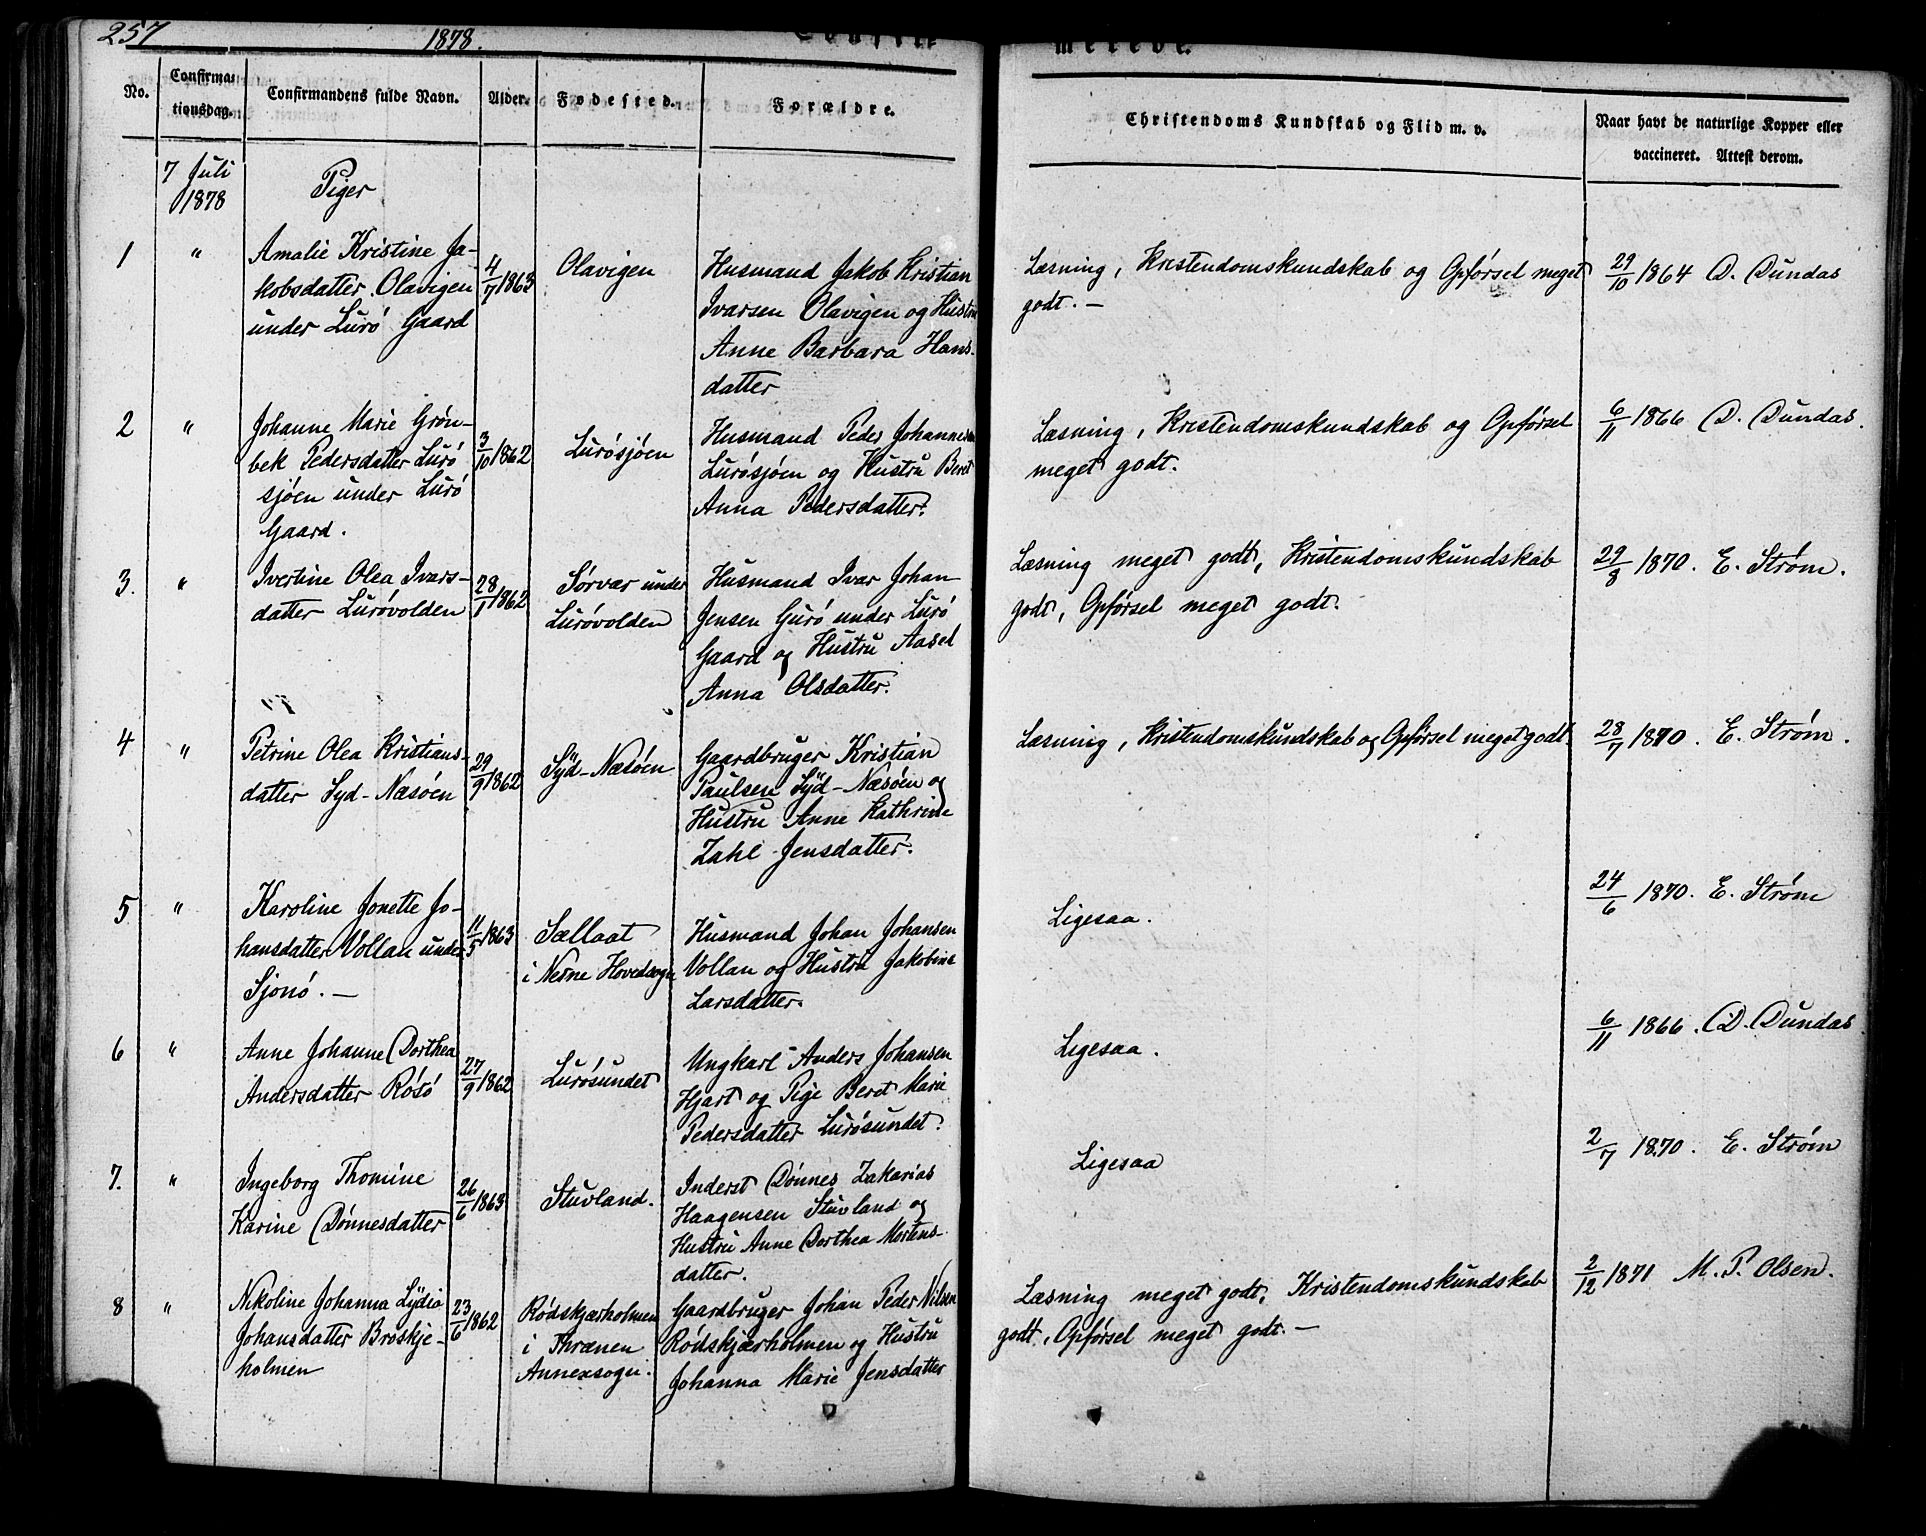 257
1878.
No.
Confirma-
tionsdag.
Confirmandens fulde Navn.
Alder.
Fødested.
Forældre.
Christendoms Kundskab og Flid m. v.
Naar havt de naturlige Kopper eller
vaccineret. Attest derom.
7 Juli
1878
Piger
1 " Amalie Kristine Ja-
kobsdatter Olavigen
under Lurö Gaard
4/7 1863
Olavigen
Husmand Jakob Kristian
Ivarsen Olavigen og Hustru
Anne Barbara Hans-
datter
Læsning, Kristendomskundskab og Opførsel meget
godt. —
29/10 1864 D. Dundas
2 " Johanne Marie Grøn-
bek Pedersdatter Lurö
sjöen under Lurö
Gaard.
3/10 1862
Lurösjöen
Husmand Peder Johannesen
Lurösjöen og Hustru Beret
Anna Pedersdatter.
Læsning, Kristendomskundskab og Opførsel
meget godt.
6/11 1866 D. Dundas.
3. " Ivertine Olea Ivars-
datter Lurövolden
28/1 1862
Sörvær under
Lurövolden
Husmand Ivar Johan
Jensen Gurö under Lurö
Gaard og Hustru Aasel
Anna Olsdatter.
Læsning meget godt, Kristendomskundskab
godt, Opførsel meget godt.
29/8 1870. E. Strøm.
4 " Petrine Olea Kristians-
datter Syd-Næsöen
29/9 1862
Syd-Næsöen
Gaardbruger Kristian
Paulsen Syd-Næsöen og
Hustru Anne Kathrine
Zahl Jensdatter.
Læsning, Kristendomskundskab og Opførsel meget godt.
28/7 1870. E. Strøm.
5 " Karoline Jonette Jo-
hansdatter Vollan under
Sjonö. —
11/5 1863
Sællaat
i Nesne Hovedsogn
Husmand Johan Johansen
Vollan og Hustru Jakobine
Larsdatter.
Ligesaa.
24/6 1870. E. Strøm
6 " Anne Johanne Dorthea
Andersdatter Rösö
27/9 1862
Lurösundet
Ungkarl Anders Johansen
Hjart og Pige Beret Marie
Pedersdatter Lurösundet.
Ligesaa.
6/11 1866. D. Dundas
7. " Ingeborg Thomine
Karine Dönnesdatter
26/6 1863
Stuvland.
Inderst Dönnes Zakarias
Haagensen Stuvland og
Hustru Anne Dorthea Mortens-
datter.
Ligesaa
2/7 1870. E. Strøm
8 " Nikoline Johanna Lydia
Johansdatter Broskje-
holmen
23/6 1862
Rødskjærholmen
i Thrænen
Annexsogn.
Gaardbruger Johan Peder Nilsen
Rødskjærholmen og Hustru
Johanna Marie Jensdatter
Læsning meget godt, Kristendomskundskab
godt, Opførsel meget godt. —
2/12 1871 M. P. Olsen.